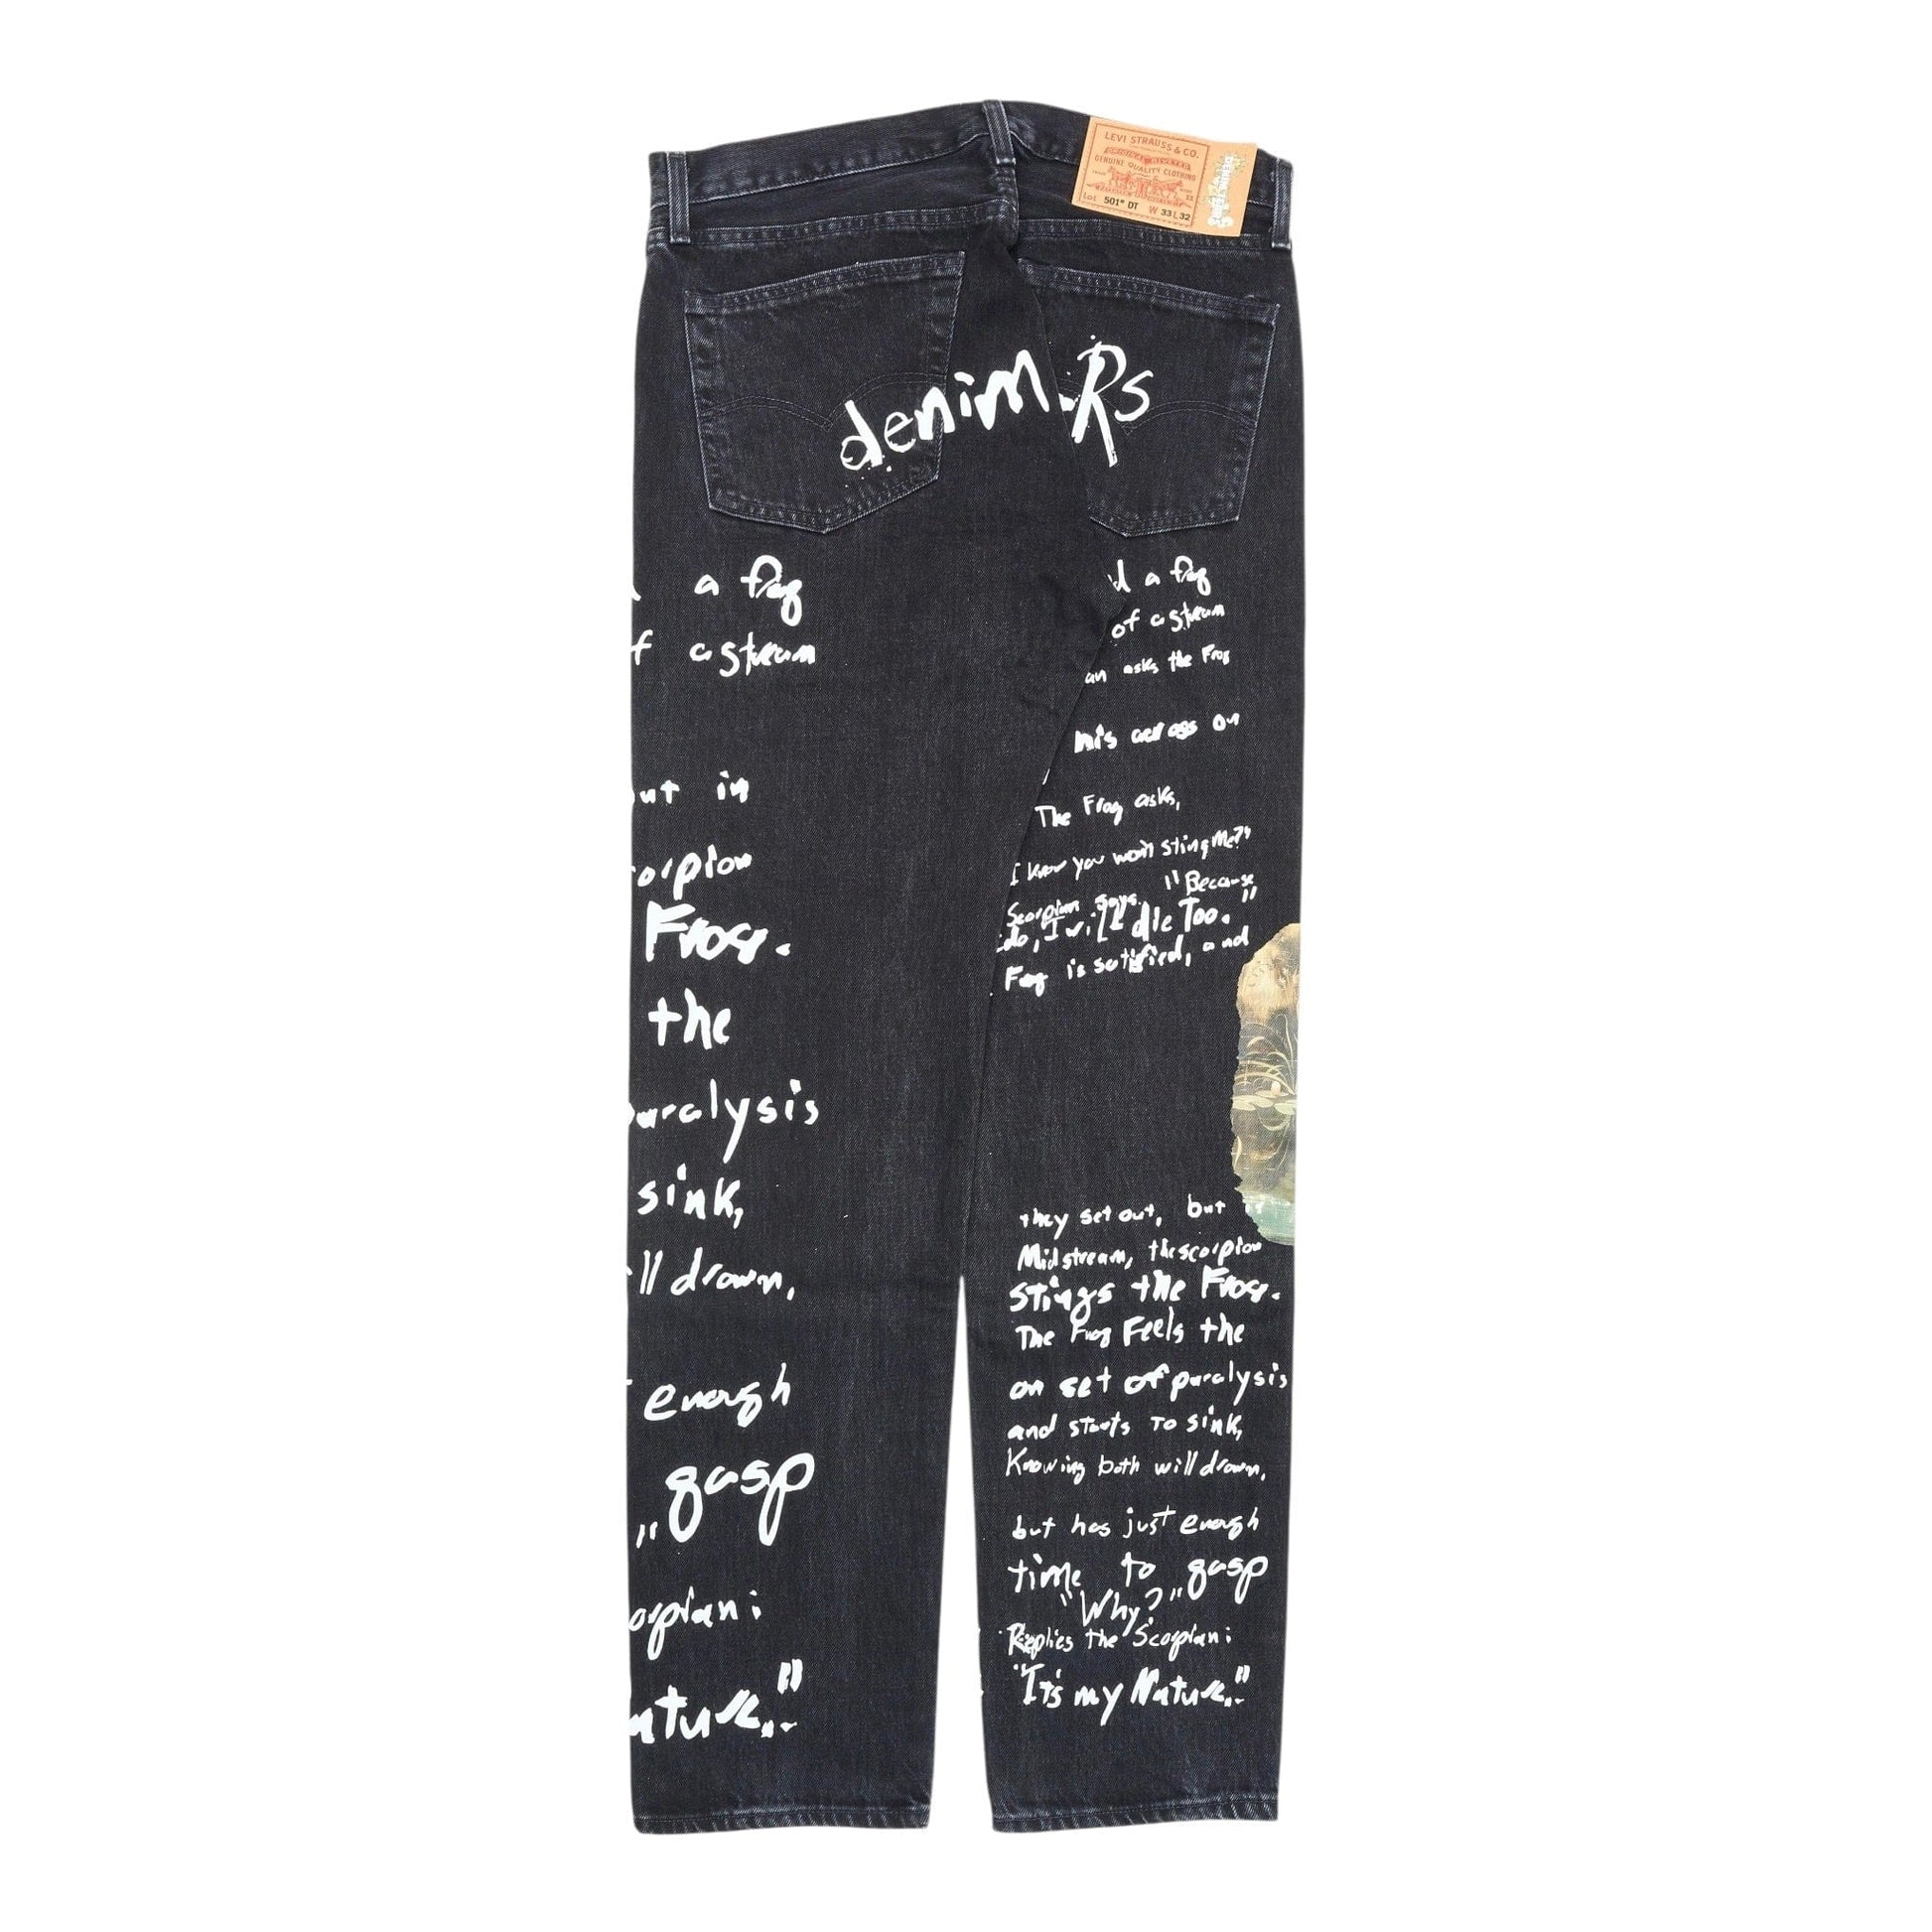 LEVI STRAUSS & CO.
ORIGINAL RIVETED
GENUINE QUALITY CLOTHING
TRADE MARK
Lot 501® DT W 33 L 32
denim.Rs
a frog
f a stream
out in
orpion
Frog.
the
paralysis
sink,
ll drown,
enough
" gasp
orpian:
ature."
d a frog
of a stream
an asks the Frog
his across on
The Frog asks,
I know you won't sting me?"
Scorpian says "Because
do, I will die Too."
Frog is satisfied, and
they set out, but
Midstream, the scorpion
stings the Frog.
The Frog Feels the
on set of paralysis
and starts to sink,
Knowing both will drown,
but has just enough
time to gasp
"Why?"
Replies the Scorpian:
"It's my Nature.."